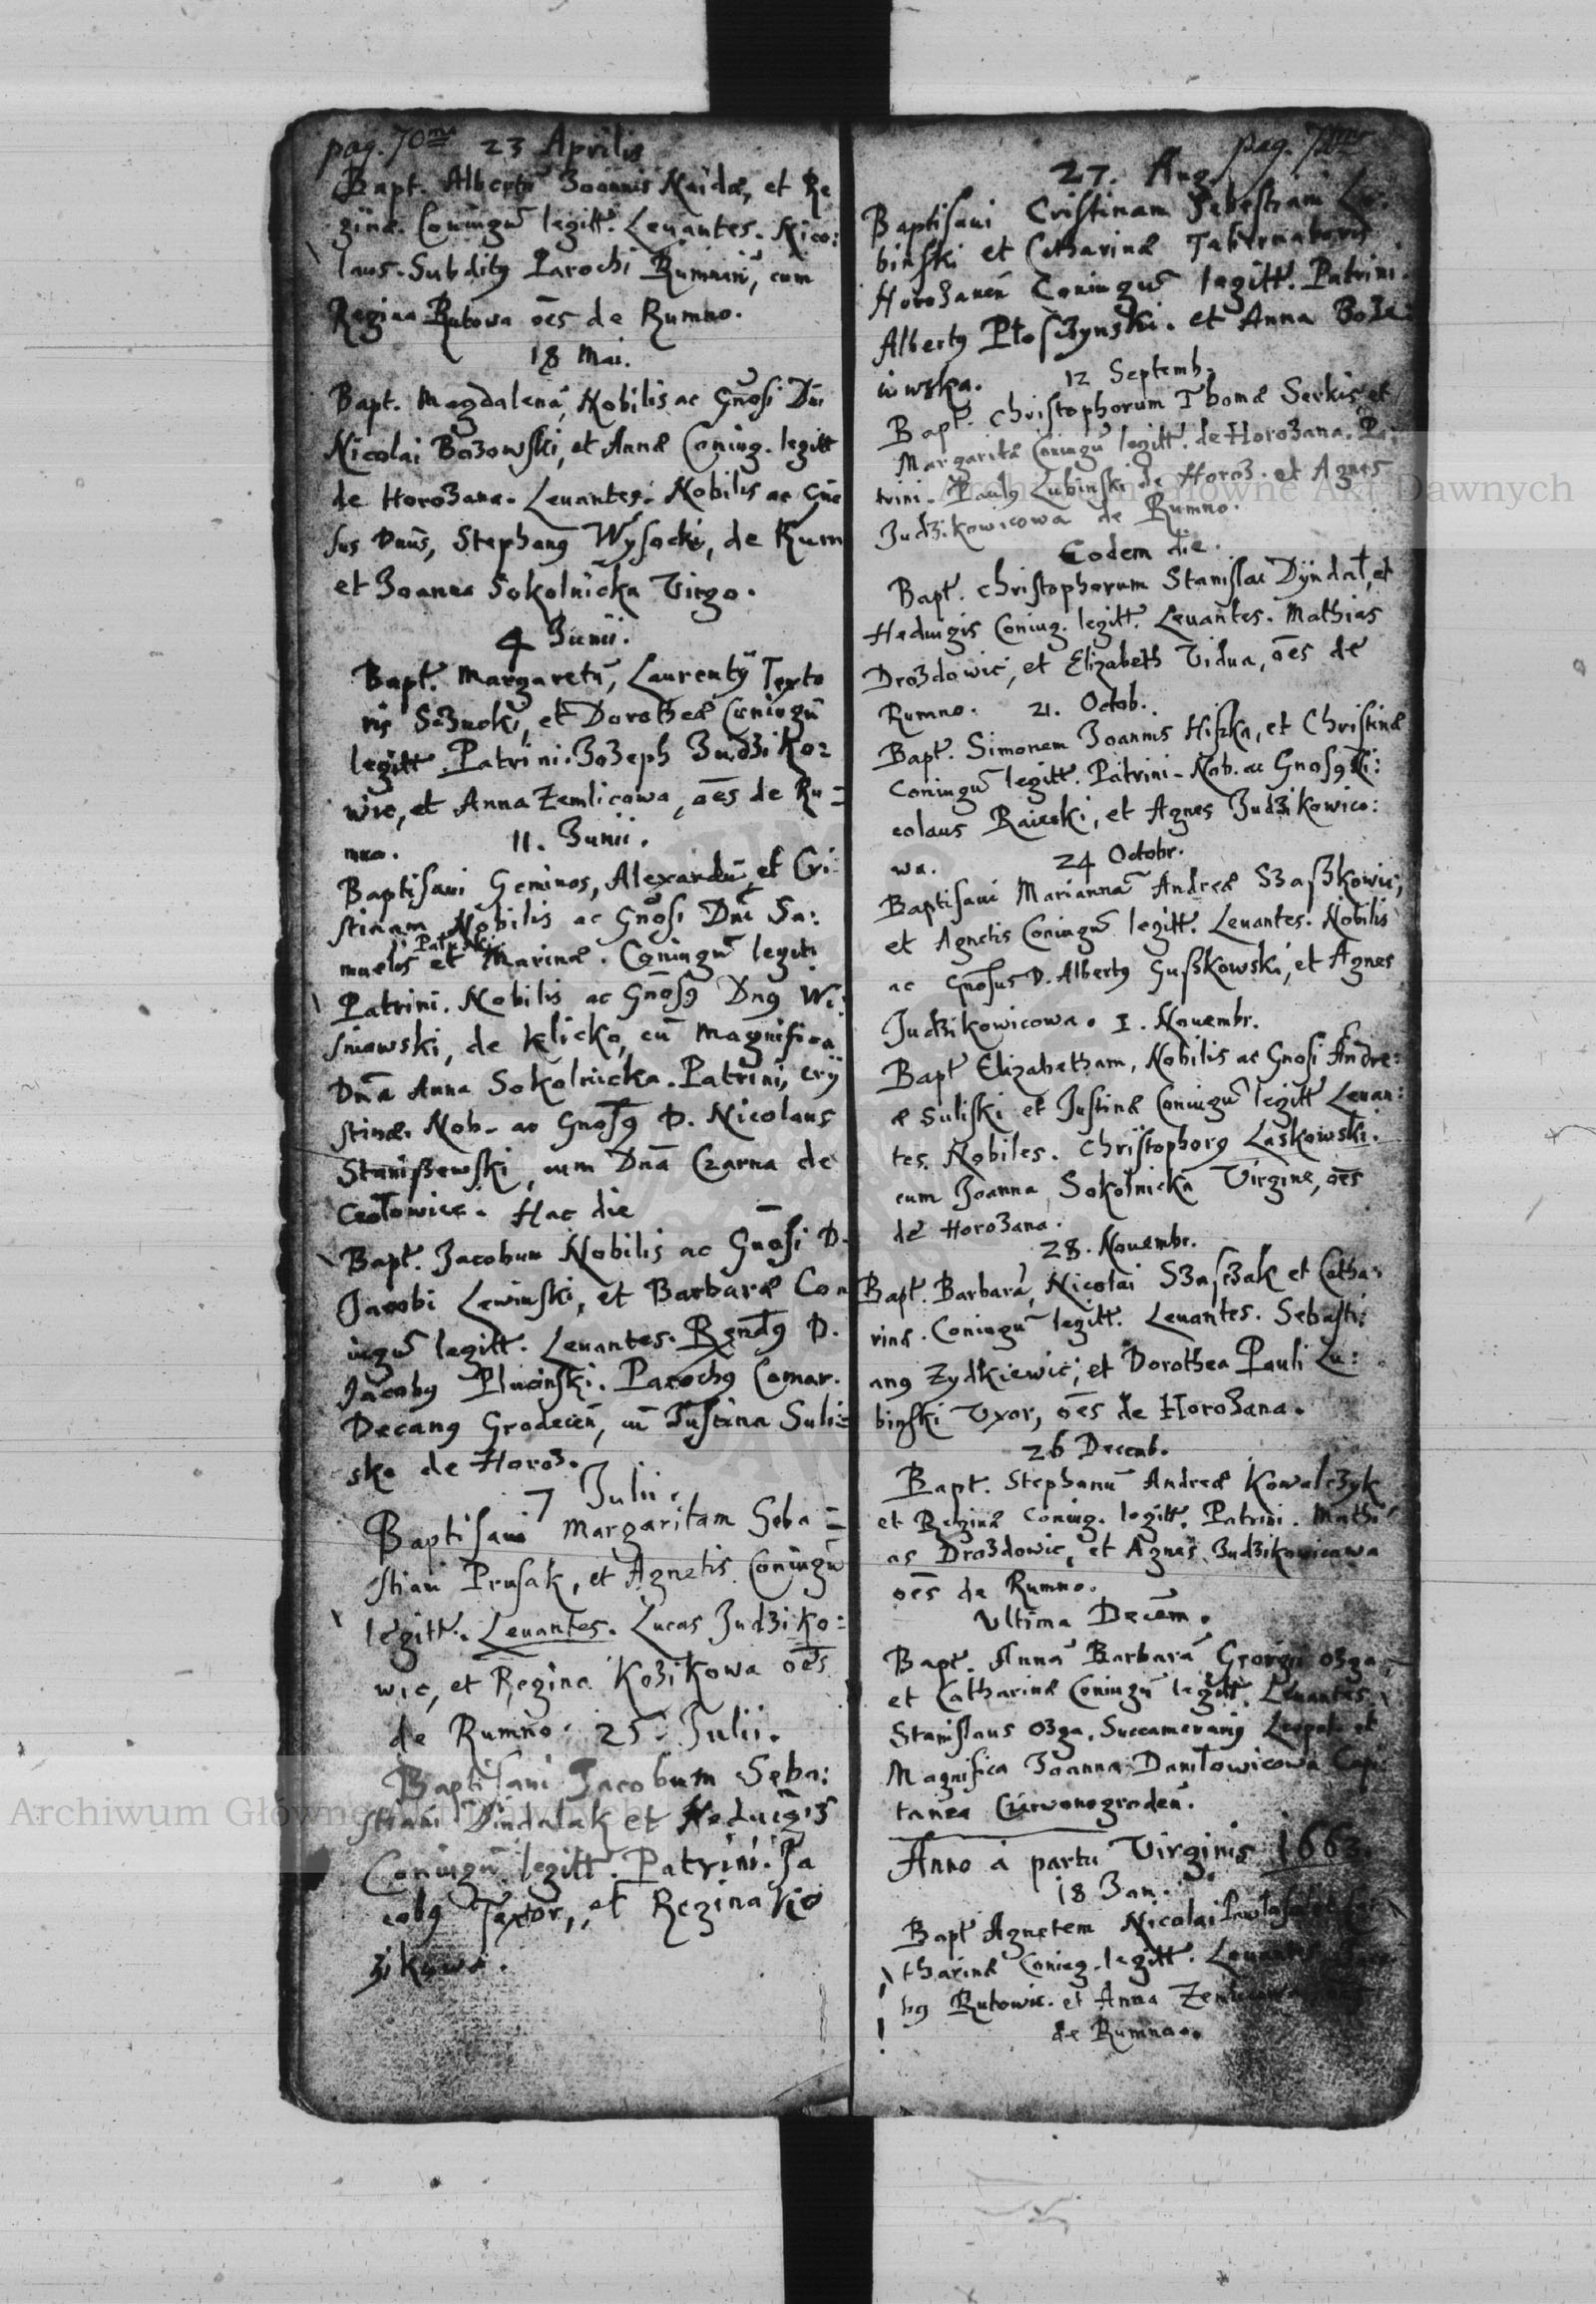 pag. 70ma 23 Aprilis
Bapt. Albertũ Joannis Naidæ, et Re
ginæ Coniugũ legitt. Leuantes. Nico:
laus. Subditꝰ Parochi Rumnẽn, cum
Regina Rutowa oẽs de Rumno.
18 Mai.
Bapt. Magdalenã, Nobilis ac Gñosi Dñi
Nicolai Bozowski, et Annæ Coniug. legitt
de Horozana. Leuantes. Nobilis ac Gño
sus Dnũs, Stephanꝰ Wysocki, de Rum
et Joanna Sokolnicka Virgo.
4 Junii.
Bapt. Margaretã, Laurentÿ Texto
ris et Dorotheæ Coniugũ
legitt. Patrini. Jozeph Judziko=
wic, et Anna Zemlicowa, oẽs de Ru=
mno. 11. Junii.
Baptisaui Geminos, Alexandrũ, et Cri
stinam Nobilis ac Gñosi Dñi Sa:
muelis et Marinæ. Coniugũ legitt
Patrini. Nobilis ac Gñosꝰ Dnꝰ Wi:
sniowski, de Klicko, cũ Magnifica
Dnã Anna Sokolnicka. Patrini, Crÿ
stinæ. Nob. ac Gnosꝰ D. Nicolaus
Staniszewski, cum Dnã Czarna de
Hac die
Bapt. Jacobum Nobilis ac Gnõsi D.
Jacobi Lewinski, et Barbaræ Con
iugũ legitt. Leuantes. Rendꝰ D.
Jacobꝰ Plucinski. Parochꝰ Comar.
Decanꝰ Grodecẽn, cũ Justina Suli=
ska de Horoz.
7 Julii.
Baptisaui Margaritam Seba=
stiani Prusak, et Agnetis Coniugũ
legitt. Leuantes. Lucas Judziko:
wic, et Regina Kozikowa oẽs
de Rumno. 25. Julii.
Baptisaui Jacobum Seba:
stiani Dindalak et Heduigis
Coniugũ legitt. Patrini. Ja
cobꝰ Textor, et Regina Ko
zikowa.
pag. 71ma
27. Aug
Baptisaui Cristinam Sebestiani Lu:
binski et Catharinæ Tabernatoris
Horozanẽn Coniugũ legitt. Patrini.
Albertꝰ Płosczynski. et Anna Boze:
iowska. 12 Septemb.
Bapt. Christophorum Thomæ Serkis, et
Margaritæ Coniugũ legitt. de Horozana. Pa:
trini. Paulꝰ Lubinski de Horoz. et Agnes
Judzikowicowa de Rumno.
Eodem die.
Bapt. Christophorum Stanislai Dÿndał, et
Heduigis Coniug. legitt. Leuantes. Mathias
Drozdowic, et Elizabeth Vidua, oẽs de
Rumno. 21. Octob.
Bapt. Simonem Joannis Hiszka, et Christinæ
Coniugũ legitt. Patrini. Nob. ac Gnosꝰ Ni:
colaus Raiecki, et Agnes Judzikowico:
wa. 24 Octobr.
Baptisaui Mariannã Andreæ Szaszkowic,
et Agnetis Coniugũ legitt. Leuantes. Nobilis
ac Gnosus D. Albertꝰ Guszkowski, et Agnes
Judzikowicowa. 1. Nouembr.
Bapt Elizabetham, Nobilis ac Gnosi Andre:
æ Suliski et Justinæ Coniugũ legitt Leuan:
tes. Nobiles. Christophorꝰ Laskowski.
cum Joanna Sokolnicka Virgine, oẽs
de Horozana.
28. Nouembr.
Bapt. Barbarã, Nicolai Szasczak et Catha:
rinæ. Coniugũ legitt. Leuantes. Sebasti:
anꝰ Zydkiewic, et Dorothea Pauli Lu:
binski Vxor, oẽs de Horozana.
26 Decemb.
Bapt. Stephanũ Andreæ Kowalczyk
et Reginæ Coniug. legitt. Patrini. Mathi
as Drozdowic, et Agnes Judzikowicowa
oẽs de Rumno.
Vltima Decem.
Bapt. Annã Barbarã Georgii Ozga
et Catharinæ Coniugũ legitt. Leuantes
Stanislaus Ozga. Succamerariꝰ Leopol. et
Magnifica Joanna Daniłowicowa Capi
tanea Czerwonogroden.
Anno à partu Virginis 1663.
18 Jan.
Bapt Agnetem Nicolai et Ca
tharinæ Coniug. legitt. Leuantes
bꝰ Rutowic. et Anna
de Rumno.
Archiwum Główne Akt Dawnych
Archiwum Główne Akt Dawnych